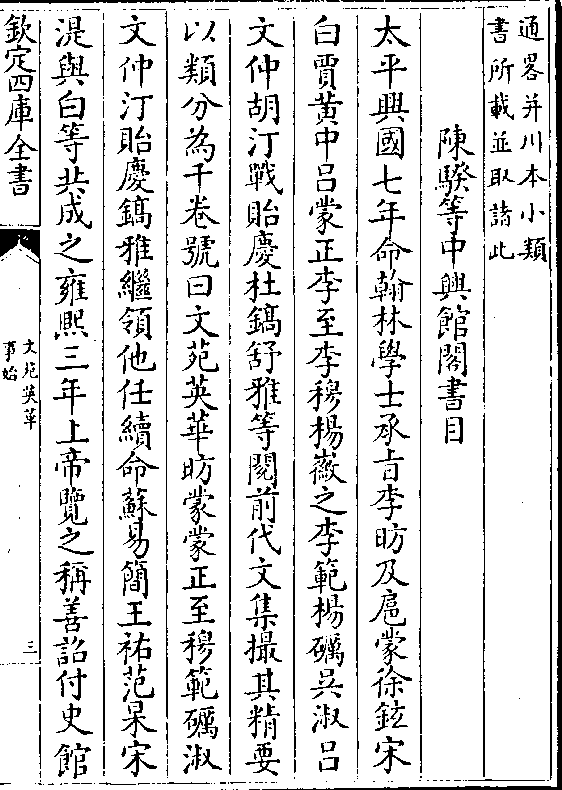 通畧并川本小類
書所載並取諸此
陳騤等中興館閣書目
太平興國七年命翰林學士承旨李昉及扈蒙徐鉉宋
白賈黃中呂蒙正李至李穆楊徽之李範楊礪吳淑呂
文仲胡汀戰貽慶杜鎬舒雅等閱前代文集撮其精要
以類分為千卷號曰文苑英華昉蒙蒙正至穆範礪淑
文仲汀貽慶鎬雅繼領他任續命蘇易簡王祐范杲宋
湜與白等共成之雍熙三年上帝覽之稱善詔付史館
欽定四庫全書
文苑英華
事始
三